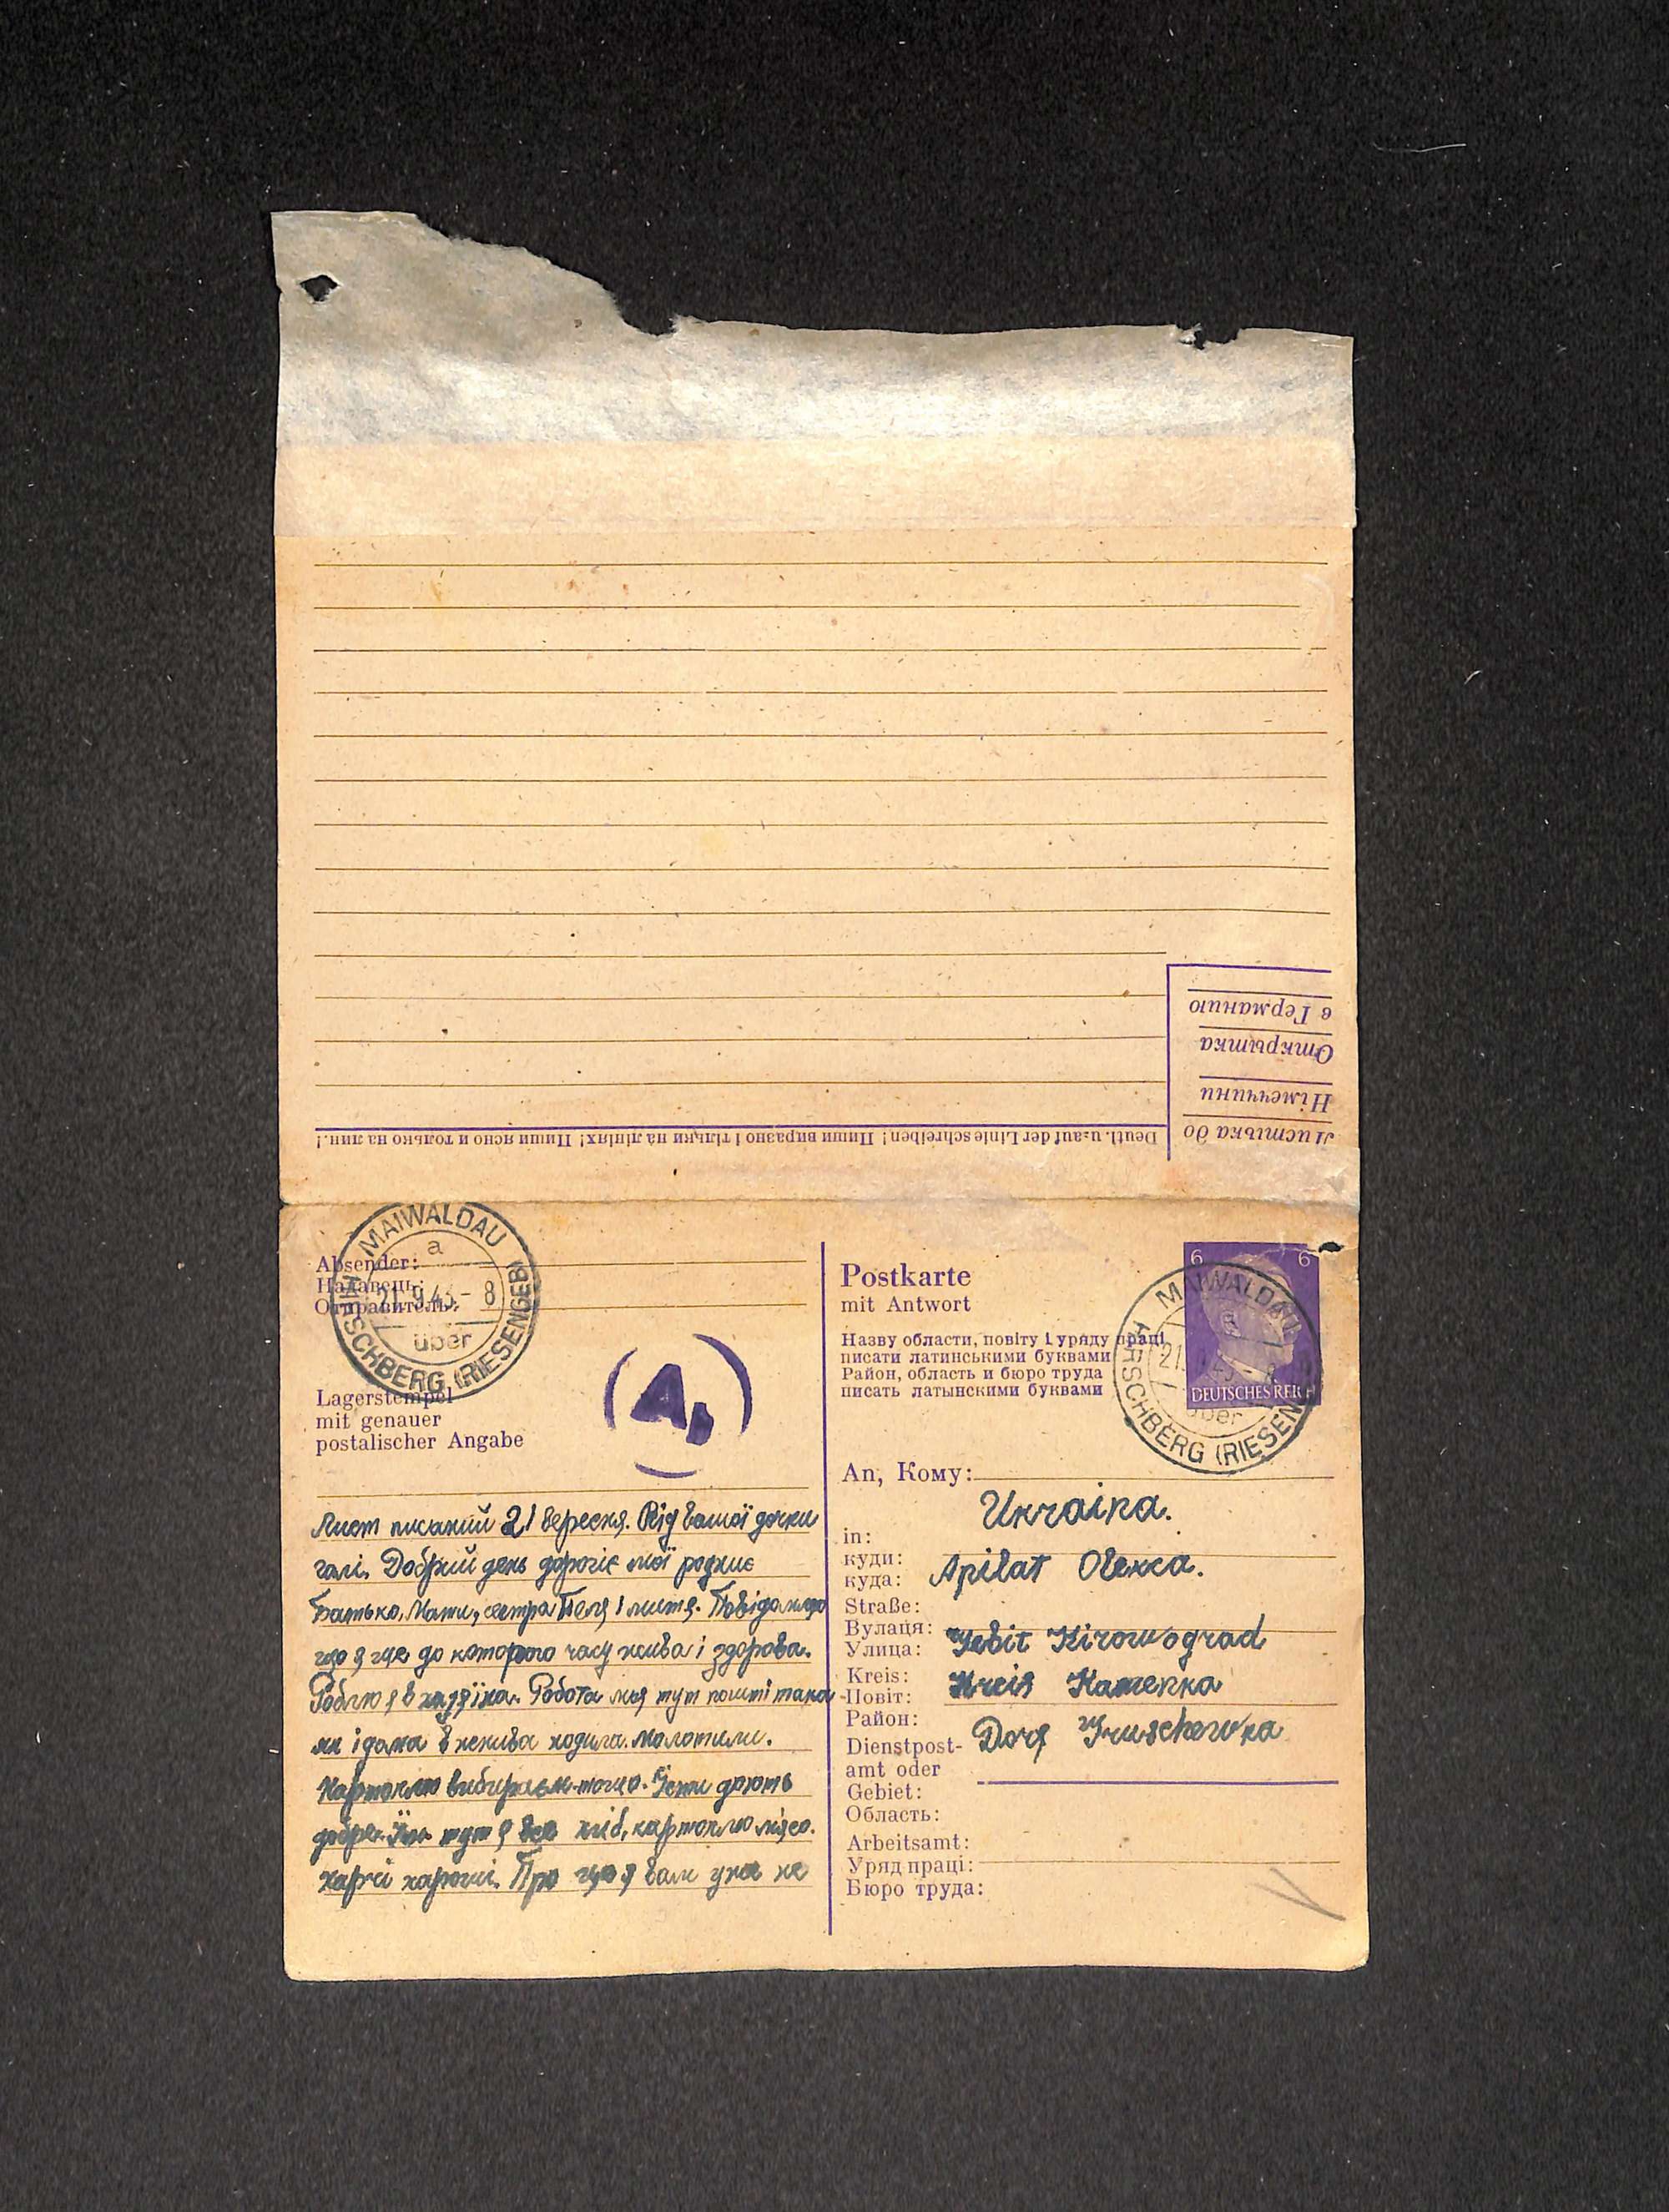 Листівка до
Німеччини
Открытка
в Германию
Deutl. u. auf der Linie schreiben! Пиши виразно і тільки на лініях! Пиши ясно и только на лин.!
MAIWALDAU
a
21.9.43-8
über
HIRSCHBERG (RIESENGEB)
Absender:
Надавець:
Отправитель:
Lagerstempel
mit genauer
postalischer Angabe
Лист писаний 21 вересня. Від вашої дочки
галі. Добрий день дорогіє мої родниє
Батько, Мати, сестра Поля і митя. Повідомляю
що я ще до которого часу жива і здорова.
Роблю я в хазяїна. Робота моя тут пошті така
як і дома в жнива ходила. молотили.
Картоплю вибираєм точно. Їсти дають
добре. тут я все хліб, картоплю мясо.
харчі харошi. Про що я вам уже не
Postkarte
mit Antwort
Назву области, повіту і уряду праці
писати латинськими буквами
Район, область и бюро труда
писать латынскими буквами
6 6
DEUTSCHES REICH
MAIWALDAU
21.
über
HIRSCHBERG (RIESEN
An, Кому:
Ukraina.
in:
куди:
куда:
Apilat Olexca.
Straße:
Вулаця:
Улица:
Gebit Kirowograd
Kreis:
Повіт:
Район:
Kreis Kamenka
Dienstpost-
amt oder
Gebiet:
Область:
Dorf Gruschewka
Arbeitsamt:
Уряд праці:
Бюро труда: